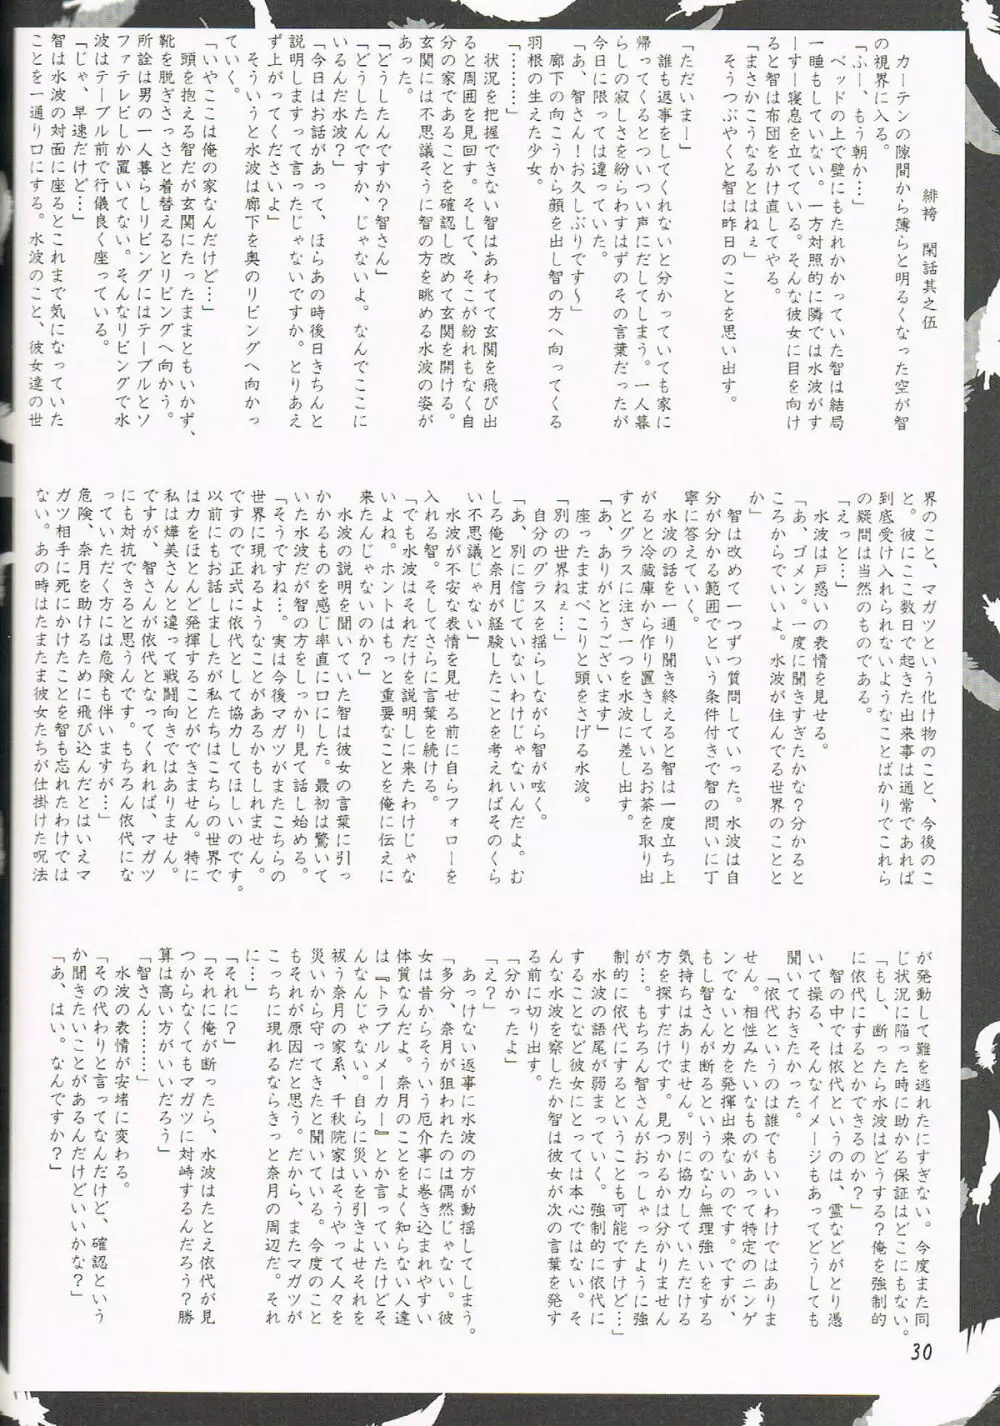 緋袴　閑話其之伍
カーテンの隙間から薄らと明るくなった空が智
の視界に入る。
「ふー、もう朝か…」
ベッドの上で壁にもたれかかっていた智は結局
一睡もしていない。一方対照的に隣では水波がす
ーすー寝息を立てている。そんな彼女に目を向け
ると智は布団をかけ直してやる。
「まさかこうなるとはねぇ」
そうつぶやくと智は昨日のことを思い出す。
「ただいまー」
誰も返事をしてくれないと分かっていても家に
帰ってくるとついつい声にだしてしまう。一人暮
らしの寂しさを紛らわすはずのその言葉だったが
今日に限っては違っていた。
「あ、智さん！お久しぶりです～」
廊下の向こうから顔を出し智の方へ向ってくる
羽根の生えた少女。
「………」
状況を把握できない智はあわてて玄関を飛び出
ると周囲を見回す。そして、そこが紛れもなく自
分の家であることを確認し改めて玄関を開ける。
玄関には不思議そうに智の方を眺める水波の姿が
あった。
「どうしたんですか？智さん」
「どうしたんですか、じゃないよ。なんでここに
いるんだ水波？」
「今日はお話があって、ほらあの時後日きちんと
説明しますって言ったじゃないですか。とりあえ
ず上がってくださいよ」
そういうと水波は廊下を奥のリビングへ向かっ
ていく。
「いやここは俺の家なんだけど…」
頭を抱える智だが玄関にたったままともいかず、
靴を脱ぎさっさと着替えるとリビングへ向かう。
所詮は男の一人暮らしリビングにはテーブルとソ
ファテレビしか置いてない。そんなリビングで水
波はテーブル前で行儀良く座っている。
「じゃ、早速だけど…」
智は水波の対面に座るとこれまで気になっていた
ことを一通り口にする。水波のこと、彼女達の世
界のこと、マガツという化け物のこと、今後のこ
と。彼にここ数日で起きた出来事は通常であれば
到底受け入れられないようなことばかりでこれら
の疑問は当然のものである。
「えっと…」
水波は戸惑いの表情を見せる。
「あ、ゴメン。一度に聞きすぎたかな？分かると
ころからでいいよ。水波が住んでる世界のことと
か」
智は改めて一つずつ質問していった。水波は自
分が分かる範囲でという条件付きで智の問いに丁
寧に答えていく。
水波の話を一通り聞き終えると智は一度立ち上
がると冷蔵庫から作り置きしているお茶を取り出
すとグラスに注ぎ一つを水波に差し出す。
「あ、ありがとうございます」
座ったままぺこりと頭をさげる水波。
「別の世界ねぇ…」
自分のグラスを揺らしながら智が呟く。
「あ、別に信じていないわけじゃないんだよ。む
しろ俺と奈月が経験したことを考えればそのくら
い不思議じゃない」
水波が不安な表情を見せる前に自らフォローを
入れる智。そしてさらに言葉を続ける。
「でも水波はそれだけを説明しに来たわけじゃな
いよね。ホントはもっと重要なことを俺に伝えに
来たんじゃないのか？」
水波の説明を聞いていた智は彼女の言葉に引っ
かかるものを感じ率直に口にした。最初は驚いて
いた水波だが智の方をしっかり見て話し始める。
「そうですね…。実は今後マガツがまたこちらの
世界に現れるようなことがあるかもしれません。
ですので正式に依代として協力してほしいのです。
以前にもお話しましたが私たちはこちらの世界で
は力をほとんど発揮することができません。特に
私は燁美さんと違って戦闘向きではありません。
ですが、智さんが依代となってくれれば、マガツ
にも対抗できると思うんです。もちろん依代にな
っていただく方には危険も伴いますが…」
危険、奈月を助けるために飛び込んだとはいえマ
ガツ相手に死にかけたことを智も忘れたわけでは
ない。あの時はたまたま彼女たちが仕掛けた呪法
が発動して難を逃れたにすぎない。今度また同
じ状況に陥った時に助かる保証はどこにもない。
「もし、断ったら水波はどうする？俺を強制的
に依代にするとかできるのか？」
智の中では依代というのは、霊などがとり憑
いて操る、そんなイメージもあってどうしても
聞いておきたかった。
「依代というのは誰でもいいわけではありま
せん。相性みたいなものがあって特定のニンゲ
ンでないと力を発揮出来ないのです。ですが、
もし智さんが断るというのなら無理強いをする
気持ちはありません。別に協力していただける
方を探すだけです。見つかるかは分かりません
が…。もちろん智さんがおっしゃったように強
制的に依代にするということも可能ですけど…」
水波の語尾が弱まっていく。強制的に依代に
することなど彼女にとっては本心ではない。そ
んな水波を察したか智は彼女が次の言葉を発す
る前に切り出す。
「分かったよ」
「え？」
あっけない返事に水波の方が動揺してしまう。
「多分、奈月が狙われたのは偶然じゃない。彼
女は昔からそういう厄介事に巻き込まれやすい
体質なんだよ。奈月のことをよく知らない人達
は『トラブルメーカー』とか言っていたけどそ
んなんじゃない。自らに災いを引きよせそれを
祓う奈月の家系、千秋院家はそうやって人々を
災いから守ってきたと聞いている。今度のこと
もそれが原因だと思う。だから、またマガツが
こっちに現れるならきっと奈月の周辺だ。それ
に…」
「それに？」
「それに俺が断ったら、水波はたとえ依代が見
つからなくてもマガツに対峙するんだろう？勝
算は高い方がいいだろう」
「智さん………」
水波の表情が安堵に変わる。
「その代わりと言ってなんだけど、確認という
か聞きたいことがあるんだけどいいかな？」
「あ、はい。なんですか？」
30